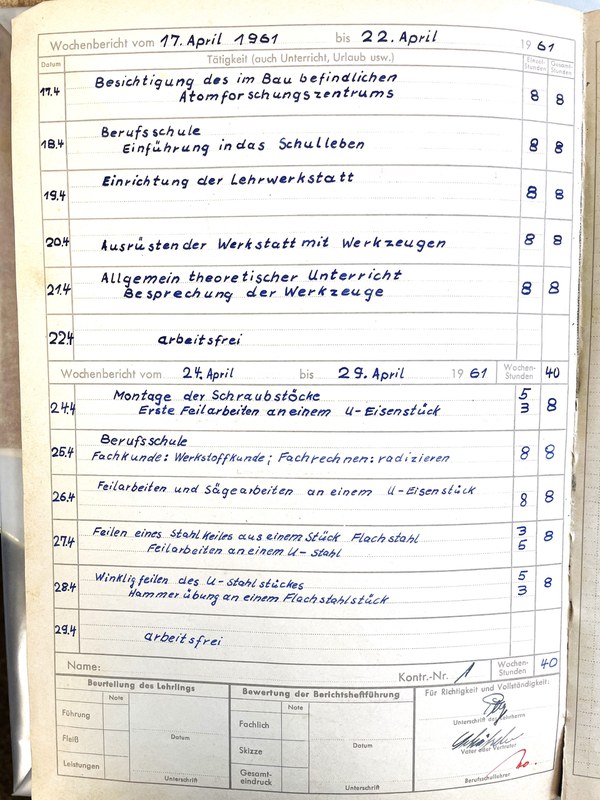 Wochenbericht vom 17. April 1961 bis 22. April 1961
Datum Tätigkeit (auch Unterricht, Urlaub usw.) Einzel-Stunden Gesamt-Stunden
17.4 Besichtigung des im Bau befindlichen
Atomforschungszentrums 8 8
18.4 Berufsschule
Einführung in das Schulleben 8 8
19.4 Einrichtung der Lehrwerkstatt 8 8
20.4 Ausrüsten der Werkstatt mit Werkzeugen 8 8
21.4 Allgemein theoretischer Unterricht
Besprechung der Werkzeuge 8 8
22.4 arbeitsfrei
Wochenbericht vom 24. April bis 29. April 1961 Wochen-Stunden 40
24.4 Montage der Schraubstöcke 5
Erste Feilarbeiten an einem U-Eisenstück 3 8
25.4 Berufsschule
Fachkunde: Werkstoffkunde; Fachrechnen: radizieren 8 8
26.4 Feilarbeiten und Sägearbeiten an einem U-Eisenstück 8 8
27.4 Feilen eines Stahlkeiles aus einem Stück Flachstahl 3
Feilarbeiten an einem U-Stahl 5 8
28.4 Winklig feilen des U-Stahlstückes 5
Hammerübung an einem Flachstahlstück 3 8
29.4 arbeitsfrei
Name: Kontr.-Nr. 1 Wochen-Stunden 40
Beurteilung des Lehrlings
Note
Führung
Fleiß
Datum
Leistungen
Unterschrift
Bewertung der Berichtsheftführung
Note
Fachlich
Skizze
Datum
Gesamt-eindruck
Unterschrift
Für Richtigkeit und Vollständigkeit:
Unterschrift des Lehrherrn
Vater oder Vertreter
Berufsschullehrer